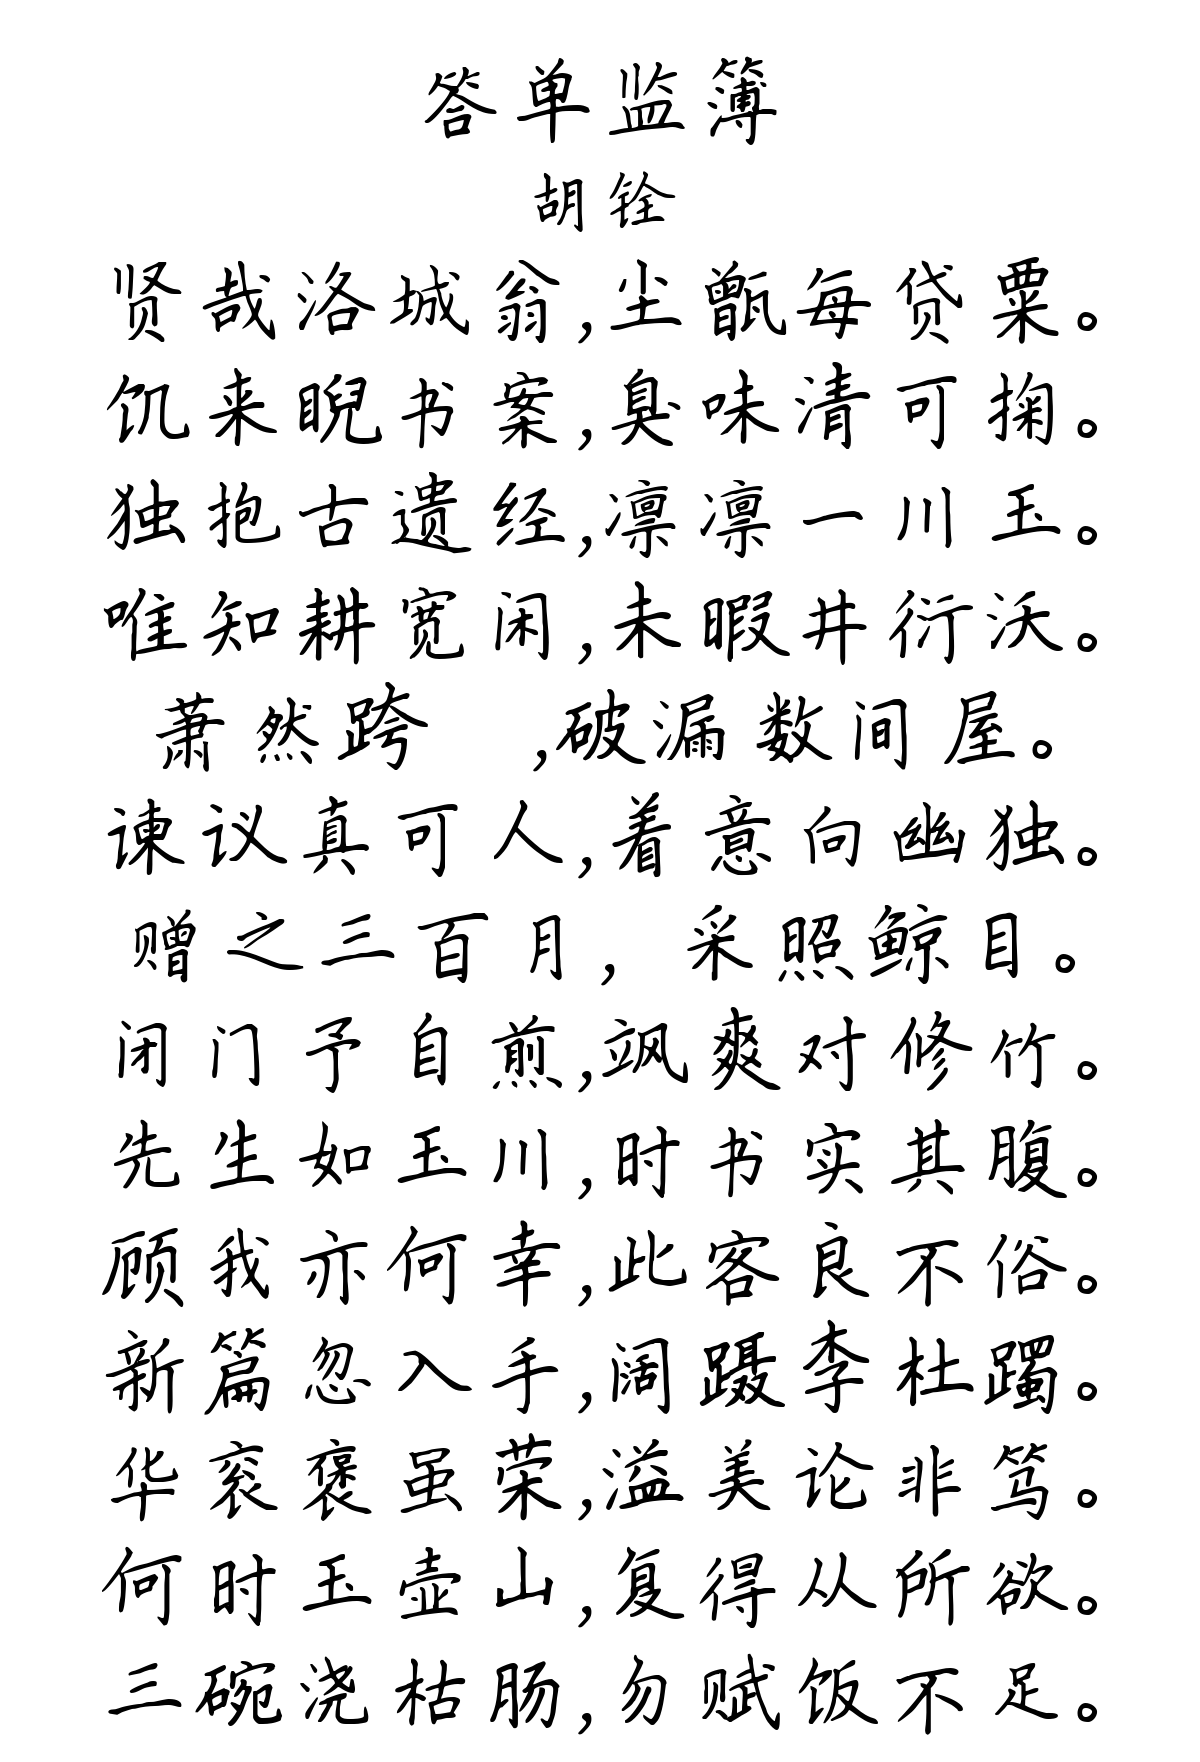 答单监簿
胡铨
贤哉洛城翁,尘甑每贷粟。
饥来睨书案,臭味清可掬。
独抱古遗经,凛凛一川玉。
唯知耕宽闲,未暇井衍沃。
萧然跨 ,破漏数间屋。
谏议真可人,着意向幽独。
赠之三百月, 采照鲸目。
闭门予自煎,飒爽对修竹。
先生如玉川,时书实其腹。
顾我亦何幸,此客良不俗。
新篇忽入手,阔蹑李杜躅。
华衮褒虽荣,溢美论非笃。
何时玉壶山,复得从所欲。
三碗浇枯肠,勿赋饭不足。